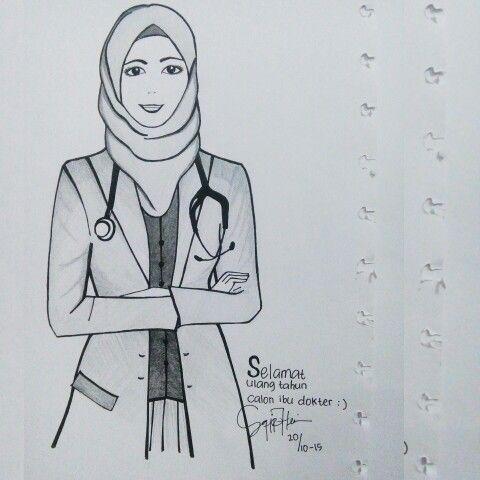 Selamat
ulang tahun
calon ibu dokter :)
20/10-15